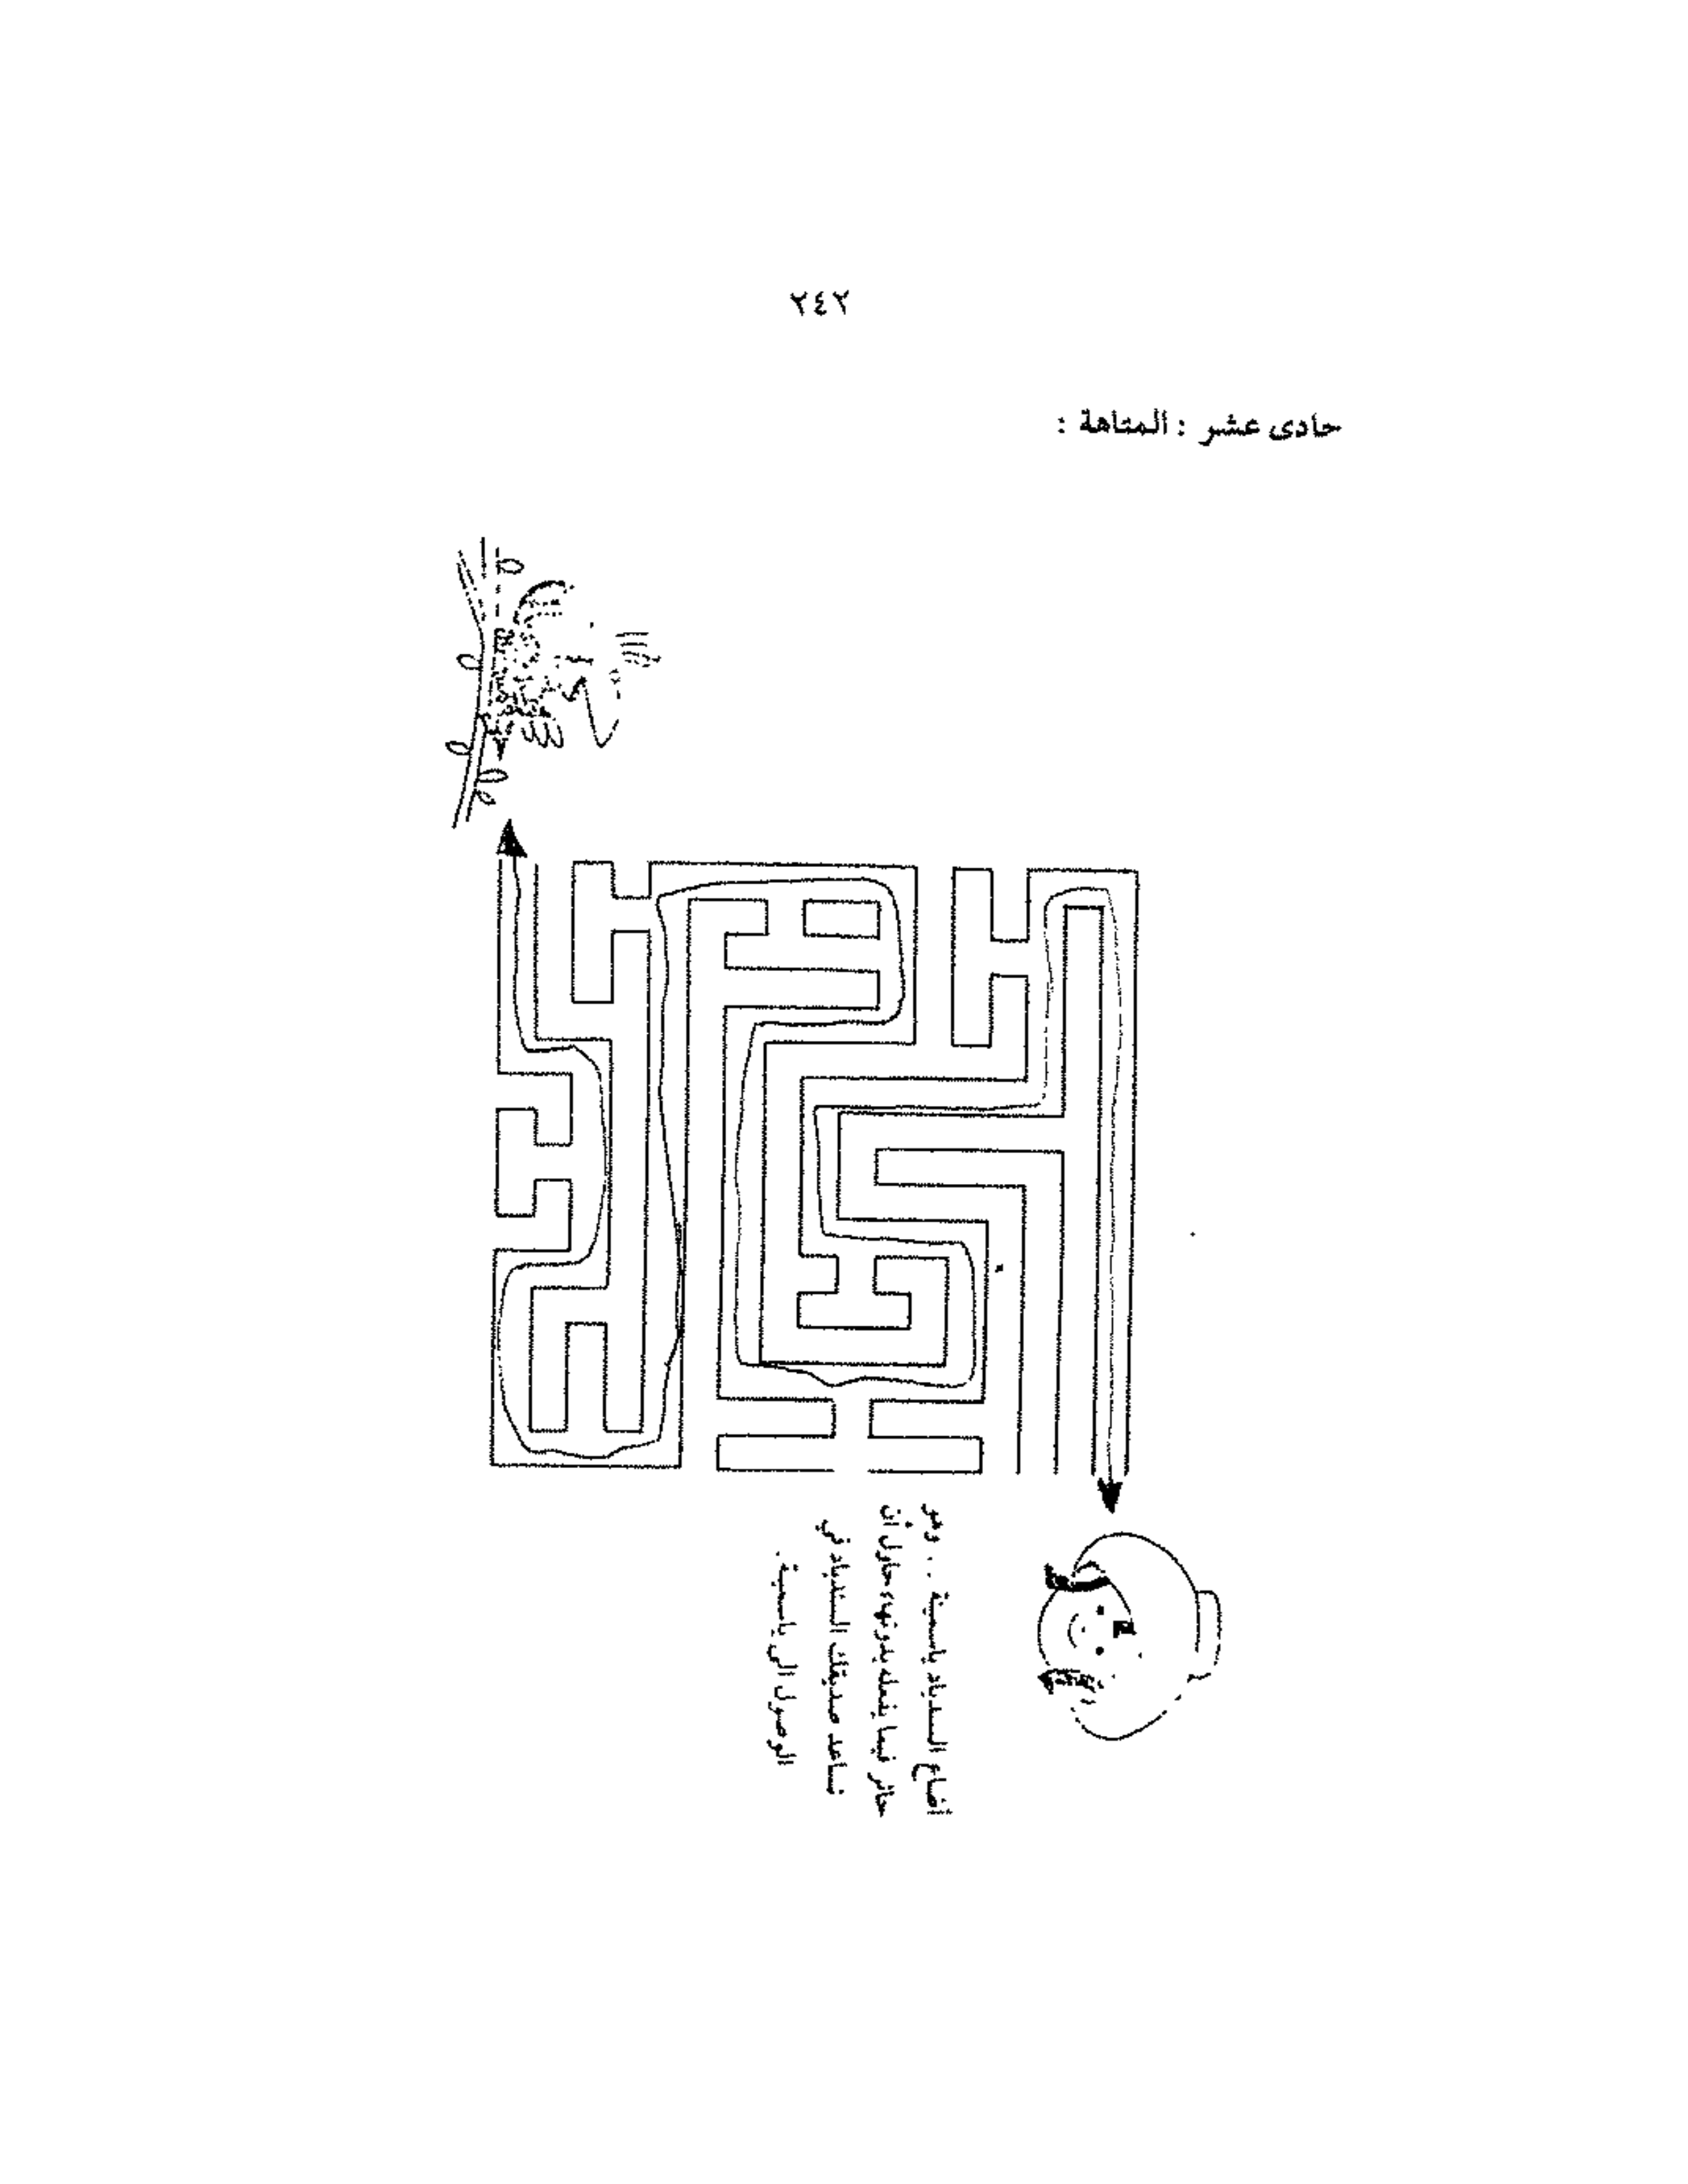 ٢٤٢
حادى عشر : المتاهة :
أضاع السندباد ياسمينة . . وهو
حائر فيما يفعله بدونها، حاول أن
تساعد صديقك السندباد في
الوصول الى ياسمينة.